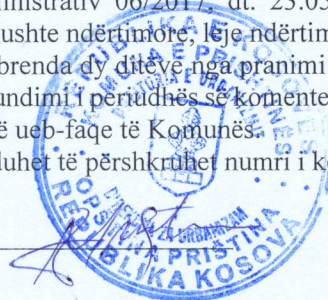 ministrativ 06/2017, dt. 23.03
ushte ndërtimore, leje ndërtim
brenda dy ditëve nga pranimi
undimi i periudhës së komente
ë ueb-faqe të Komunës.
luhet të përshkruhet numri i k
REPUBLIKA E KOSOVËS
KOMUNA E PRISHTINËS
OPŠTINA PRIŠTINA
REPUBLIKA KOSOVA